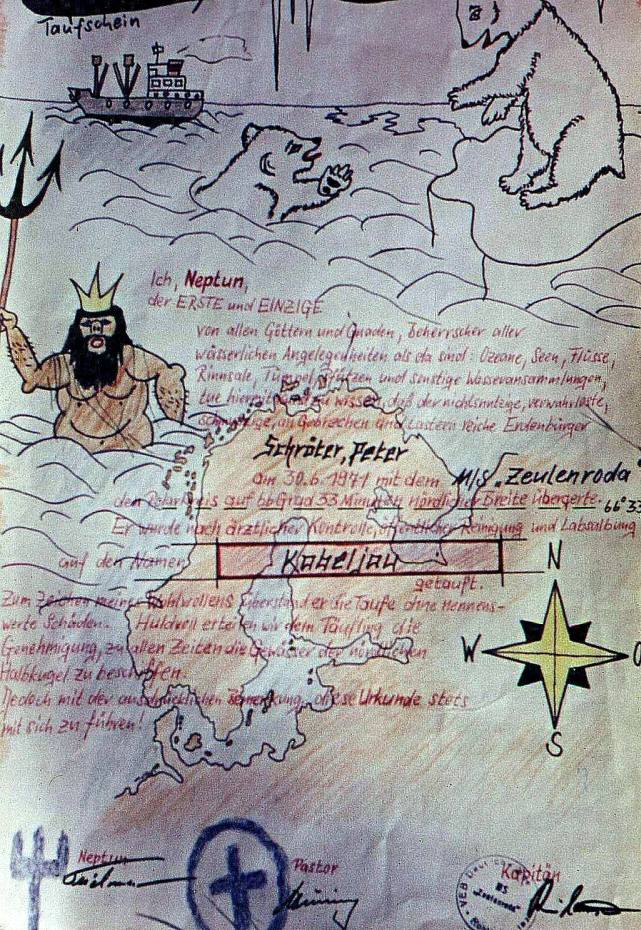 Taufschein
Ich, Neptun,
der ERSTE und EINZIGE
von allen Göttern und Gnaden, Beherrscher aller
wässerlichen Angelegenheiten als da sind: Ozeane, Seen, Flüsse,
Rinnsale, Tümpel, Pfützen und sonstige Wasseransammlungen,
tue hiermit kund zu wissen, daß der nichtsnutzige, verwahrloste,
schmutzige, an Gebrechen und Lastern reiche Erdenbürger
Schröter, Peter
am 30.6.1971 mit dem M/S "Zeulenroda"
den Polarkreis auf 66 Grad 33 Minuten nördlicher Breite überqerte. 66° 33
Er wurde nach ärztlicher Kontrolle, öffentlicher Reinigung und Labsalbung
auf den Namen Kabeljau
getauft.
Zum Zeichen meines Wohlwollens überstand er die Taufe ohne nennens-
werte Schäden. Huldvoll erteilen wir dem Täufling die
Genehmigung, zu allen Zeiten die Gewässer der nördlichen
Halbkugel zu beschiffen.
Jedoch mit der ausdrücklichen Bemerkung, diese Urkunde stets
mit sich zu führen!
N
W O
S
Neptun
Pastor
Kapitän
VEB Deut
MS
"Zeulenroda"